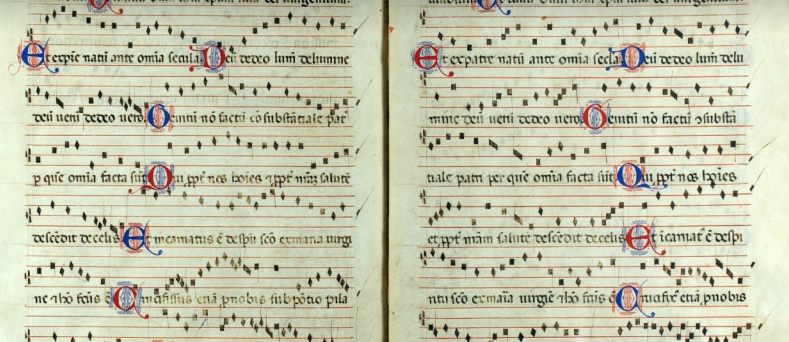 Et ex pr̄e natū ante om̄ia secula Deū de deo lum̄ de lumine
deū verū de deo vero Genitū nō factū cōsubstātiale pat
p quē om̄ia facta sūt Qui ꝓpt̄ nos hoīes ⁊ ꝓpt̄ nr̄am salutē
descēdit de celis Et incarnatus ē de sp̄u sc̄o ex maria virgi
ne ⁊ hō fc̄us ē Crucifixus etiā ꝓ nobis sub pōtio pila
Et ex patre natū ante om̄ia secl̄a Deū de deo lum̄ de lu
mine deū verū de deo vero Genitū nō factū ↄsubstā
tiale patri per quē om̄ia facta sūt Qui ꝓpt̄ nos hoīes
et ꝓpt̄ nr̄am salutē descēdit de celis Et īcarnat᷒ ē de sp̄i
ritu sc̄o ex maīa virgīe ⁊ hō fc̄us ē Crucifix᷒ etiā ꝓ nobis